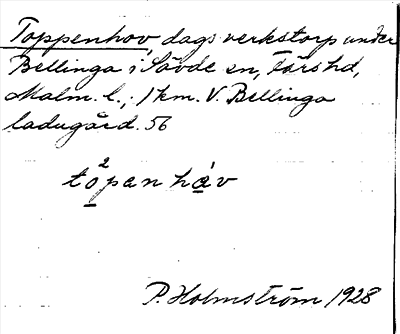 Toppenhov, dagsverkstorp under
Bellinga i Sövde sn, Färs hd,
Malm. l.; 1 km. V. Bellinga
ladugård. 56
tò²panháv
P. Holmström 1928